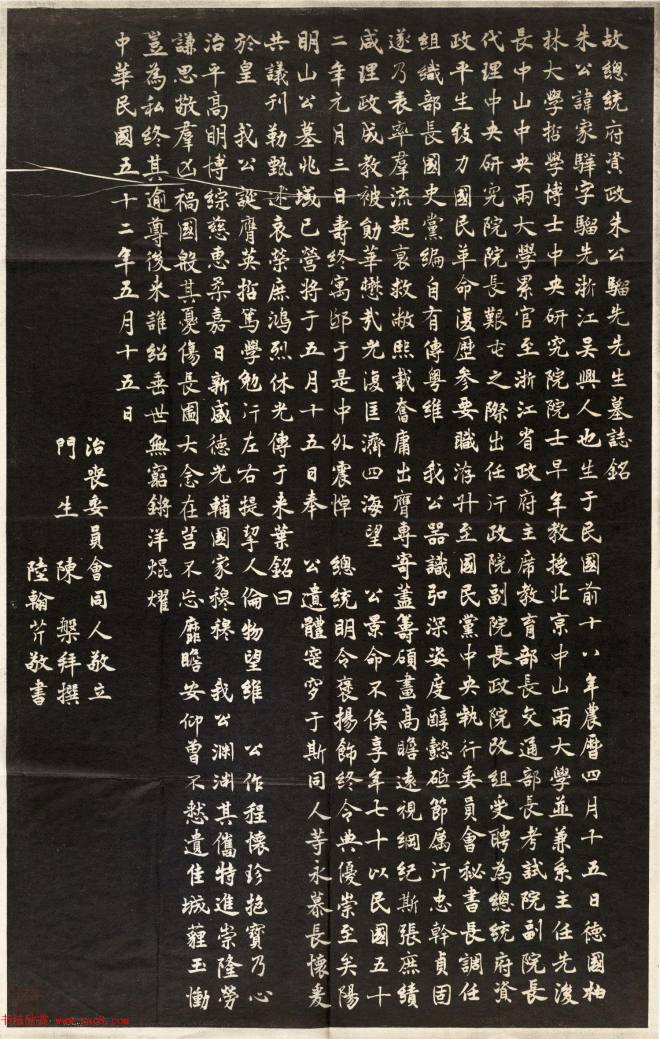 故總統府資政朱公騮先先生墓誌銘
朱公諱家驊字騮先浙江吳興人也生于民國前十八年農曆四月十五日德國柏
林大學哲學博士中央研究院院士早年教授北京中山兩大學並兼系主任先後
長中山中央兩大學累官至浙江省政府主席教育部長交通部長考試院副院長
代理中央研究院院長艱屯之際出任行政院副院長政院改組受聘為總統府資
政平生致力國民革命復歷參要職洊升至國民黨中央執行委員會秘書長調任
組織部長國史黨編自有傳粵維 我公器識弘深姿度醇懿砥節厲行忠幹貞固
遂乃表率羣流起衰救敝熙載奮庸出膺專寄蓋籌碩畫高瞻遠視綱紀斯張庶績
咸理政成教被勛華懋哉光復匡濟四海望 公景命不俟享年七十以民國五十
二年元月三日壽終寓邸于是中外震悼 總統明令褒揚飾終令典優崇至矣陽
明山公墓兆域已營將于五月十五日奉 公遺體窆穸于斯同人等永慕長懷爰
共議刊勒甄述哀榮庶鴻烈休光傳于來葉銘曰
於皇 我公誕膺英哲篤學勉行左右提挈人倫物望維 公作程懷珍抱寶乃心
治平高明博綜慈惠柔嘉日新盛德光輔國家穆穆 我公淵淵其儁特進崇隆勞
謙思敬羣凶禍國般其憂傷長圖大念在莒不忘靡瞻安仰曾不慭遺佳城薶玉慟
豈為私終其逾尊後來誰紹垂世無窮鏘洋焜燿
中華民國五十二年五月十五日
治喪委員會同人敬立
門生 陳槃拜撰
陸翰芹敬書
书法欣赏 www.yac8.com